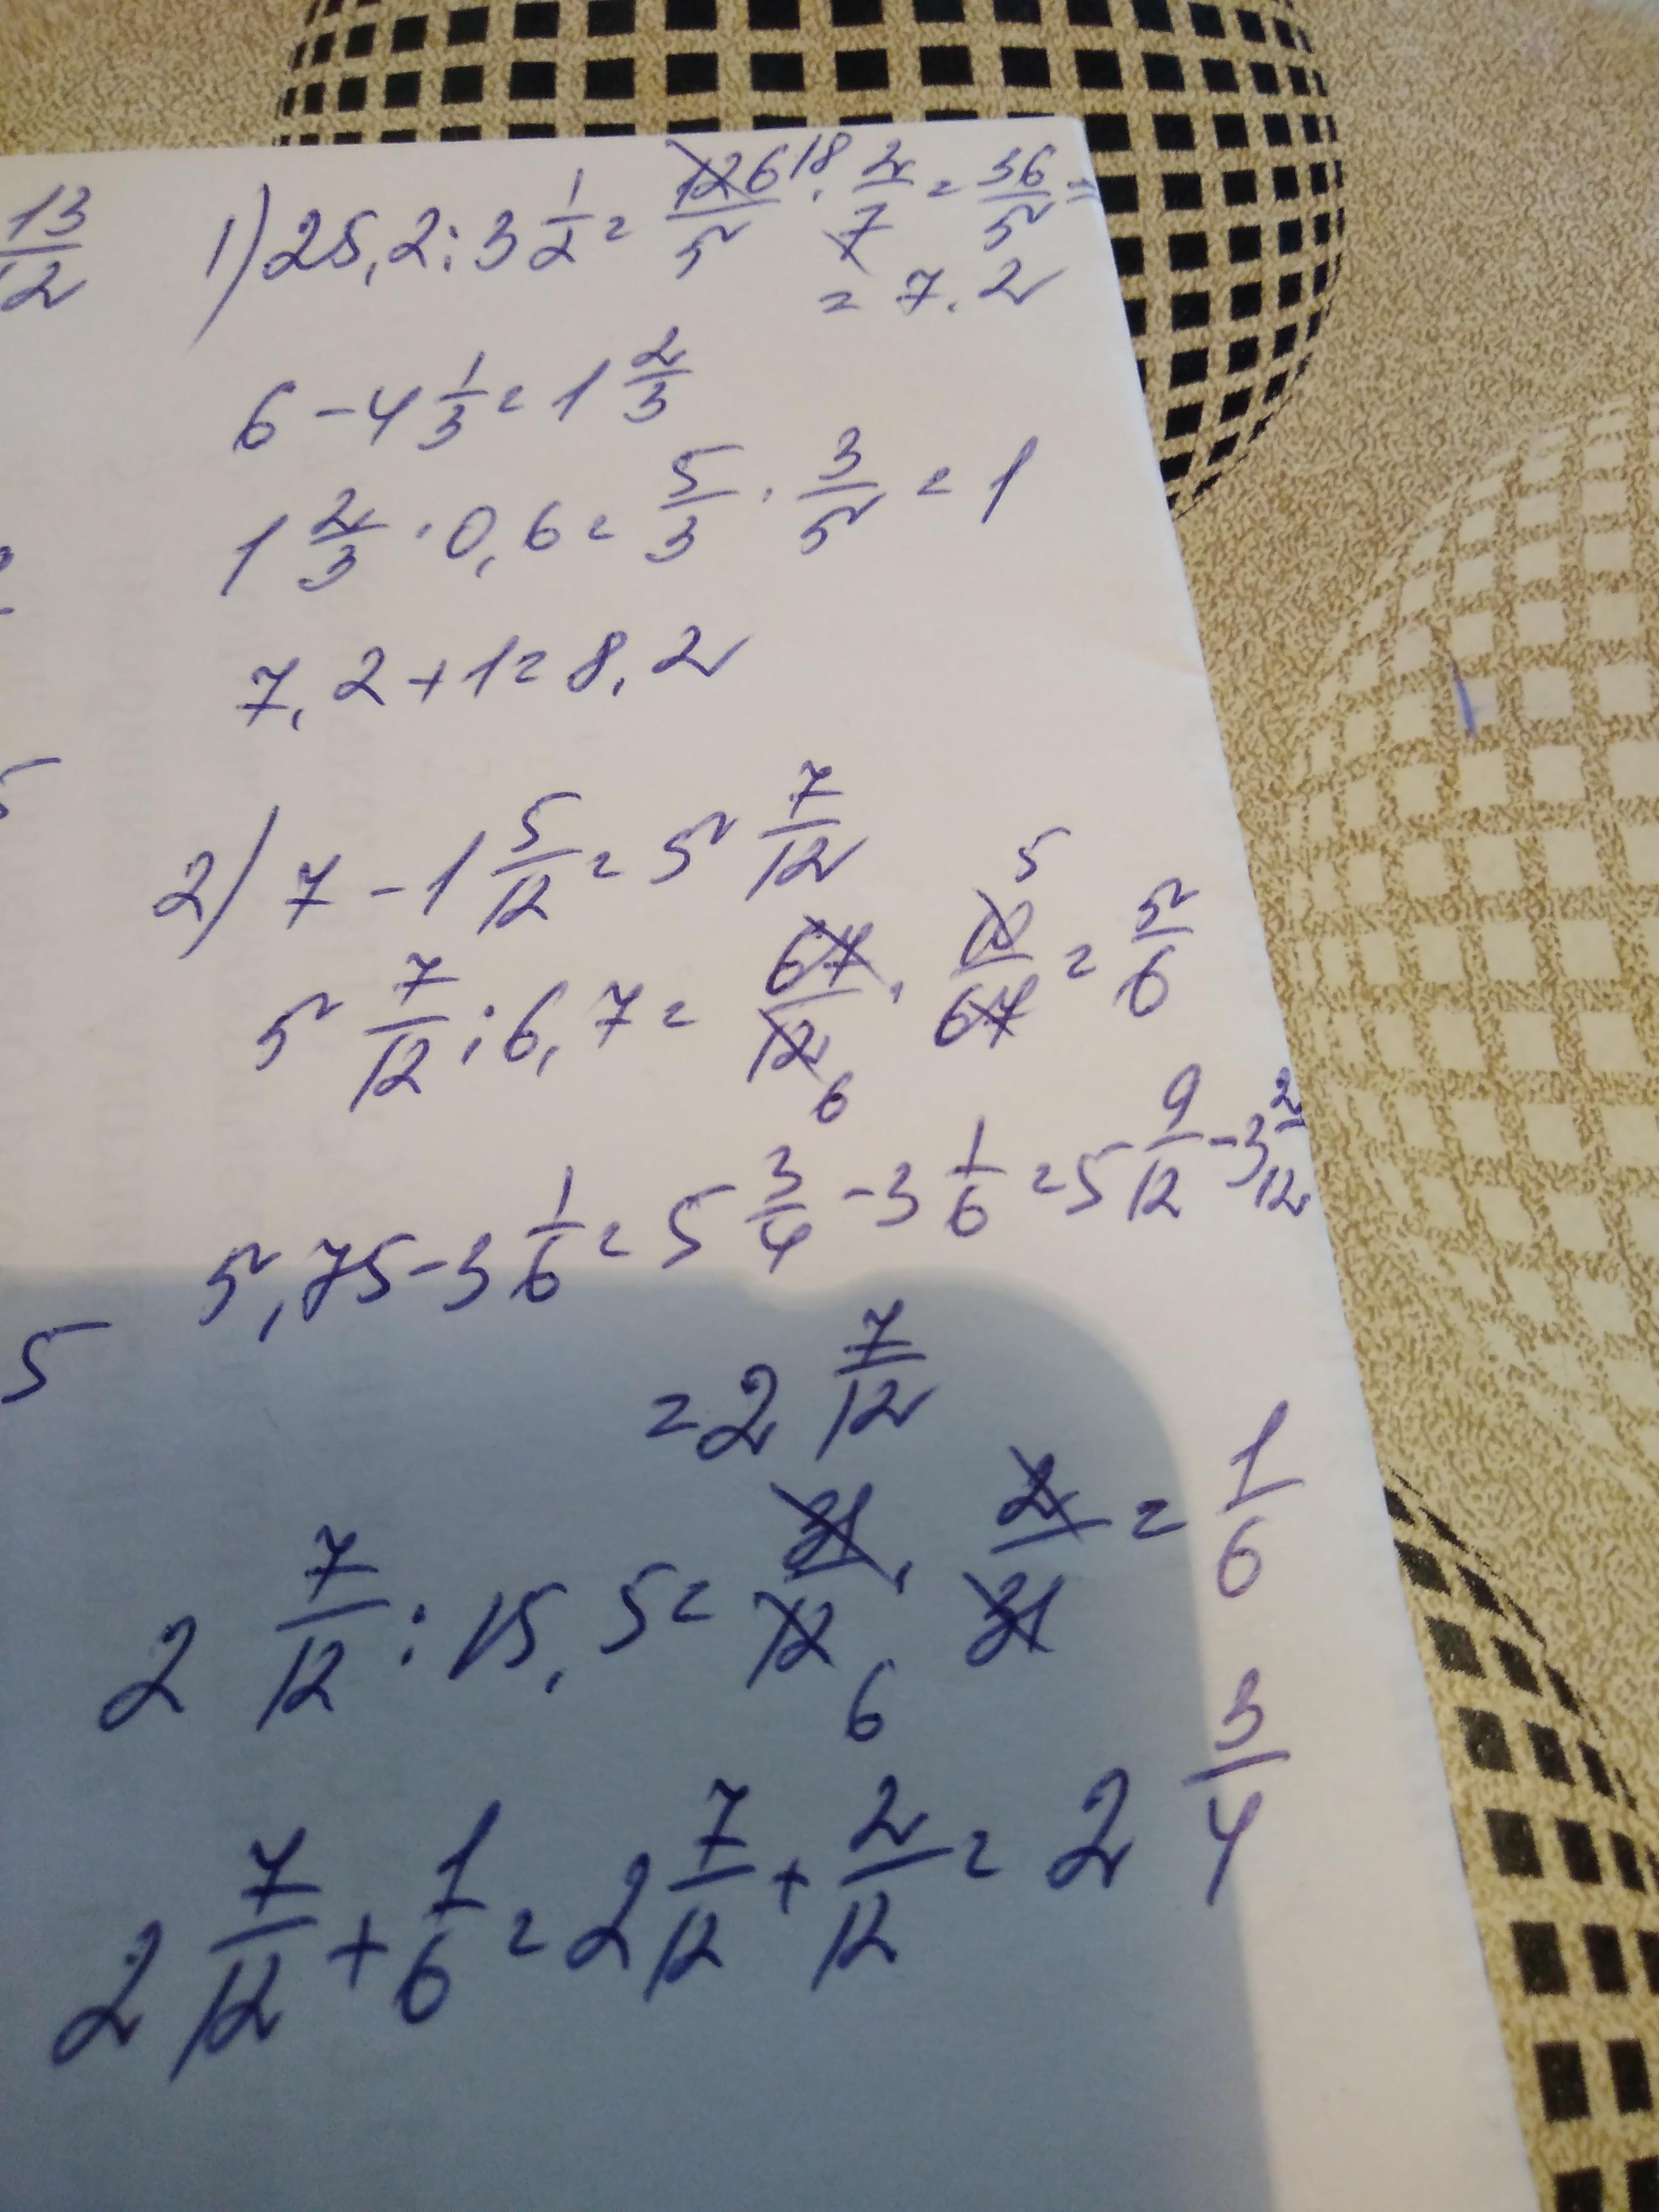 13/12
1) 25,2 : 3 1/2 = 126/5 18 · 2/7 = 36/5 =
= 7.2
6 - 4 1/3 = 1 2/3
1 2/3 · 0,6 = 5/3 · 3/5 = 1
7,2 + 1 = 8,2
2) 7 - 1 5/12 = 5 7/12
5
5 7/12 : 6,7 = 67/12 · 10/67 = 5/6
6
5,75 - 3 1/6 = 5 3/4 - 3 1/6 = 5 9/12 - 3 2/12
5
= 2 7/12
2 7/12 : 15,5 = 31/12 · 2/31 = 1/6
6
2 7/12 + 1/6 = 2 7/12 + 2/12 = 2 3/4